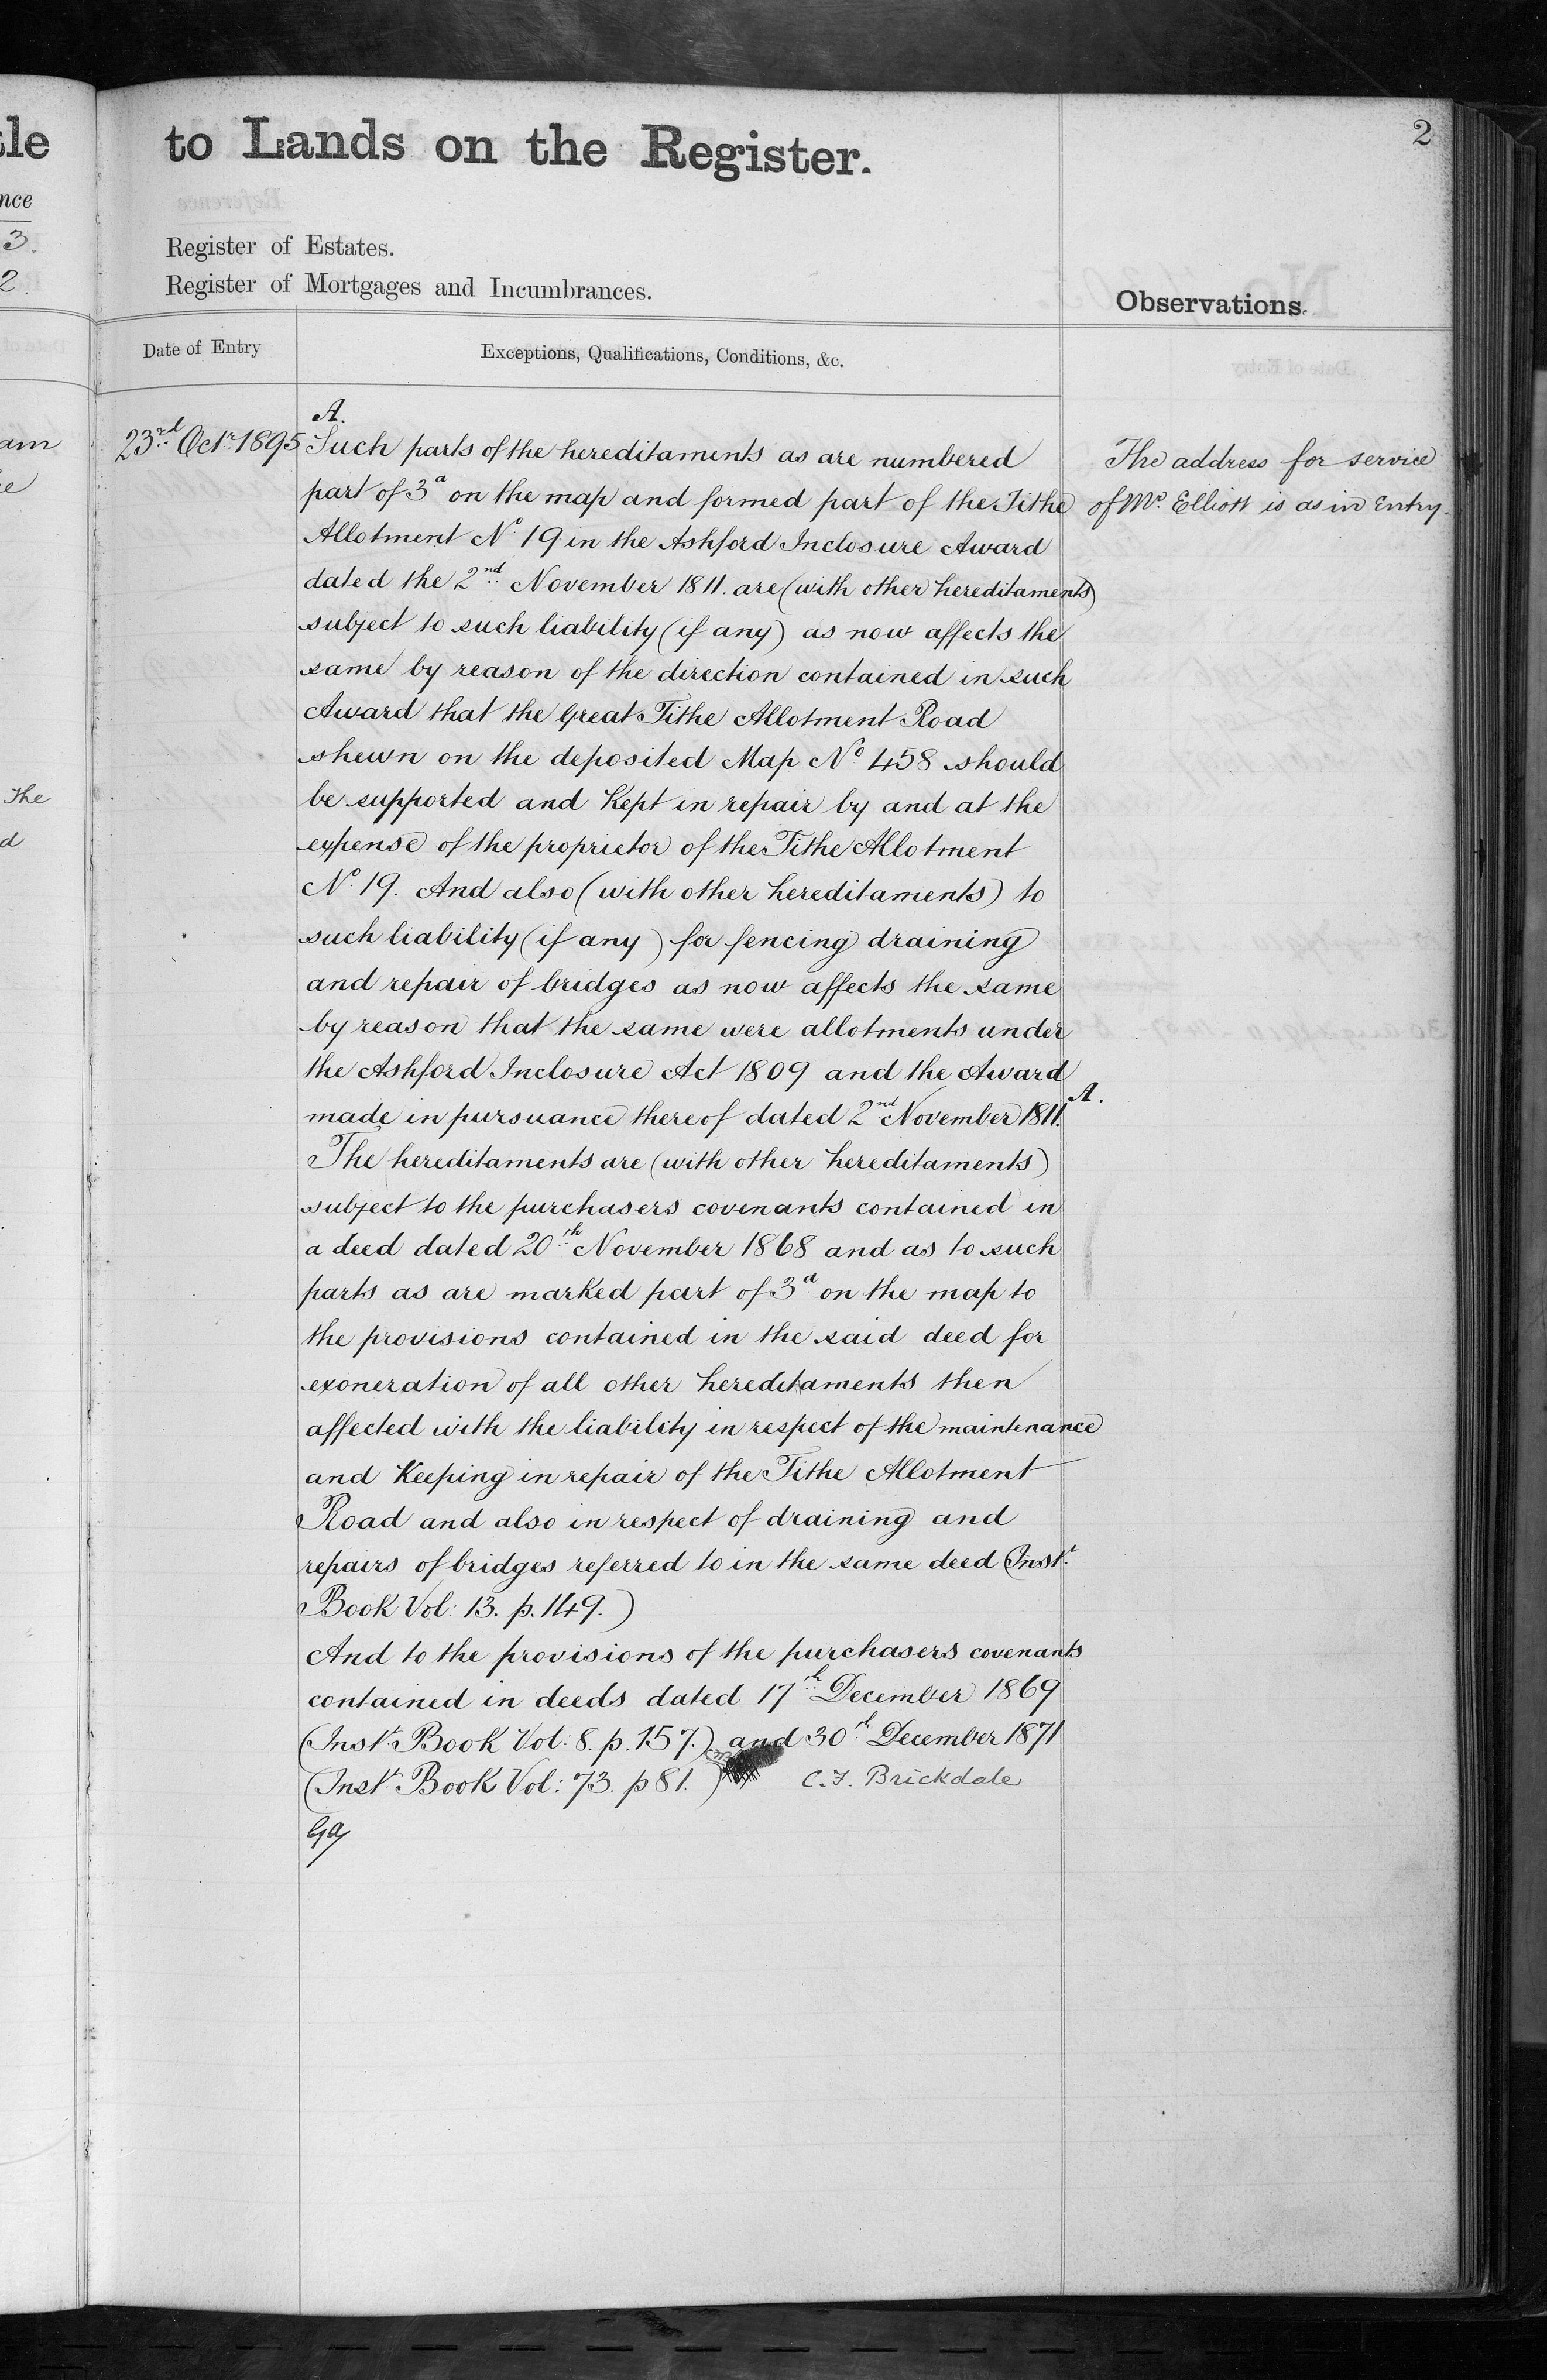 tle
nce
3.
2.
am
The
d
to Lands on the Register.
2
Register of Estates.
Register of Mortgages and Incumbrances.
Observations.
Date of Entry
Exceptions, Qualifications, Conditions, &c.
23rd Octr. 1895
A.
Such parts of the hereditaments as are numbered
part of 3a on the map and formed part of the Tithe
Allotment No 19 in the Ashford Inclosure Award
dated the 2nd November 1811. are (with other hereditaments)
subject to such liability (if any) as now affects the
same by reason of the direction contained in such
Award that the Great Tithe Allotment Road
shewn on the deposited Map No. 458 should
be supported and Kept in repair by and at the
expense of the proprietor of the Tithe Allotment
No. 19. And also (with other hereditaments) to
such liability (if any) for fencing draining
and repair of bridges as now affects the same
by reason that the same were allotments under
the Ashford Inclosure Act 1809 and the Award
made in pursuance thereof dated 2nd November 1811. A.
The hereditaments are (with other hereditaments)
subject to the purchasers covenants contained in
a deed dated 20th November 1868 and as to such
parts as are marked part of 3a on the map to
the provisions contained in the said deed for
exoneration of all other hereditaments then
affected with the liability in respect of the maintenance
and Keeping in repair of the Tithe Allotment
Road and also in respect of draining and
repairs of bridges referred to in the same deed (Inst.
Book Vol: 13. p. 149.)
And to the provisions of the purchasers covenants
contained in deeds dated 17th December 1869
(Inst. Book Vol: 8. p. 157.) and 30th December 1871
(Inst. Book Vol: 73. p 81.)
C. F. Brickdale
The address for service
of Mr. Elliott is as in Entry.